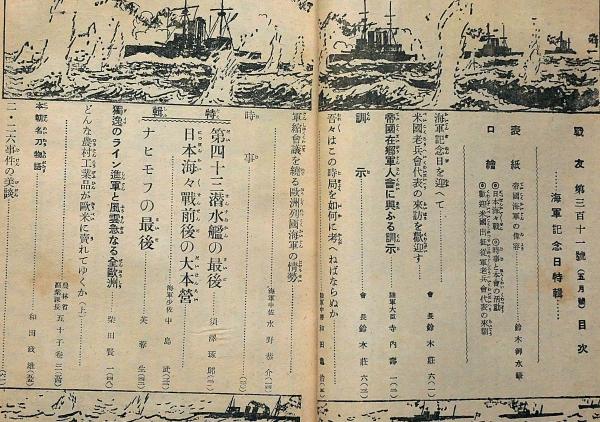 戰友 第三百十一號(五月號)目次
海軍記念日特輯
表紙 帝國海軍の偉容 鈴木御水
口繪 ◎日本海々戰 ◎時事と本會の活動
◎歡迎米國出征從軍老兵會代表の來朝
海軍記念日を迎へて 會長 鈴木莊六
米國老兵會代表の來訪を歡迎す
帝國在鄕軍人會に與ふる訓示 陸軍大臣 寺内壽一
訓示 會長 鈴木莊六
吾々はこの時局を如何に考へねばならぬか
時事
軍縮會議を繞る歐洲列國海軍の情勢 海軍中佐 水野恭介
特輯
第四十三潜水艦の最後 須澤琢郎
日本海々戰前後の大本營 海軍少佐 中島武
ナヒモフの最後
獨逸のライン進軍と風雲急なる全歐洲 柴田賢一
どんな農村工業品が歐米に賣れてゆくか(上)
農林省副業課長 五十子卷三
本朝名刀物語 和田政雄
二・二六事件の美談